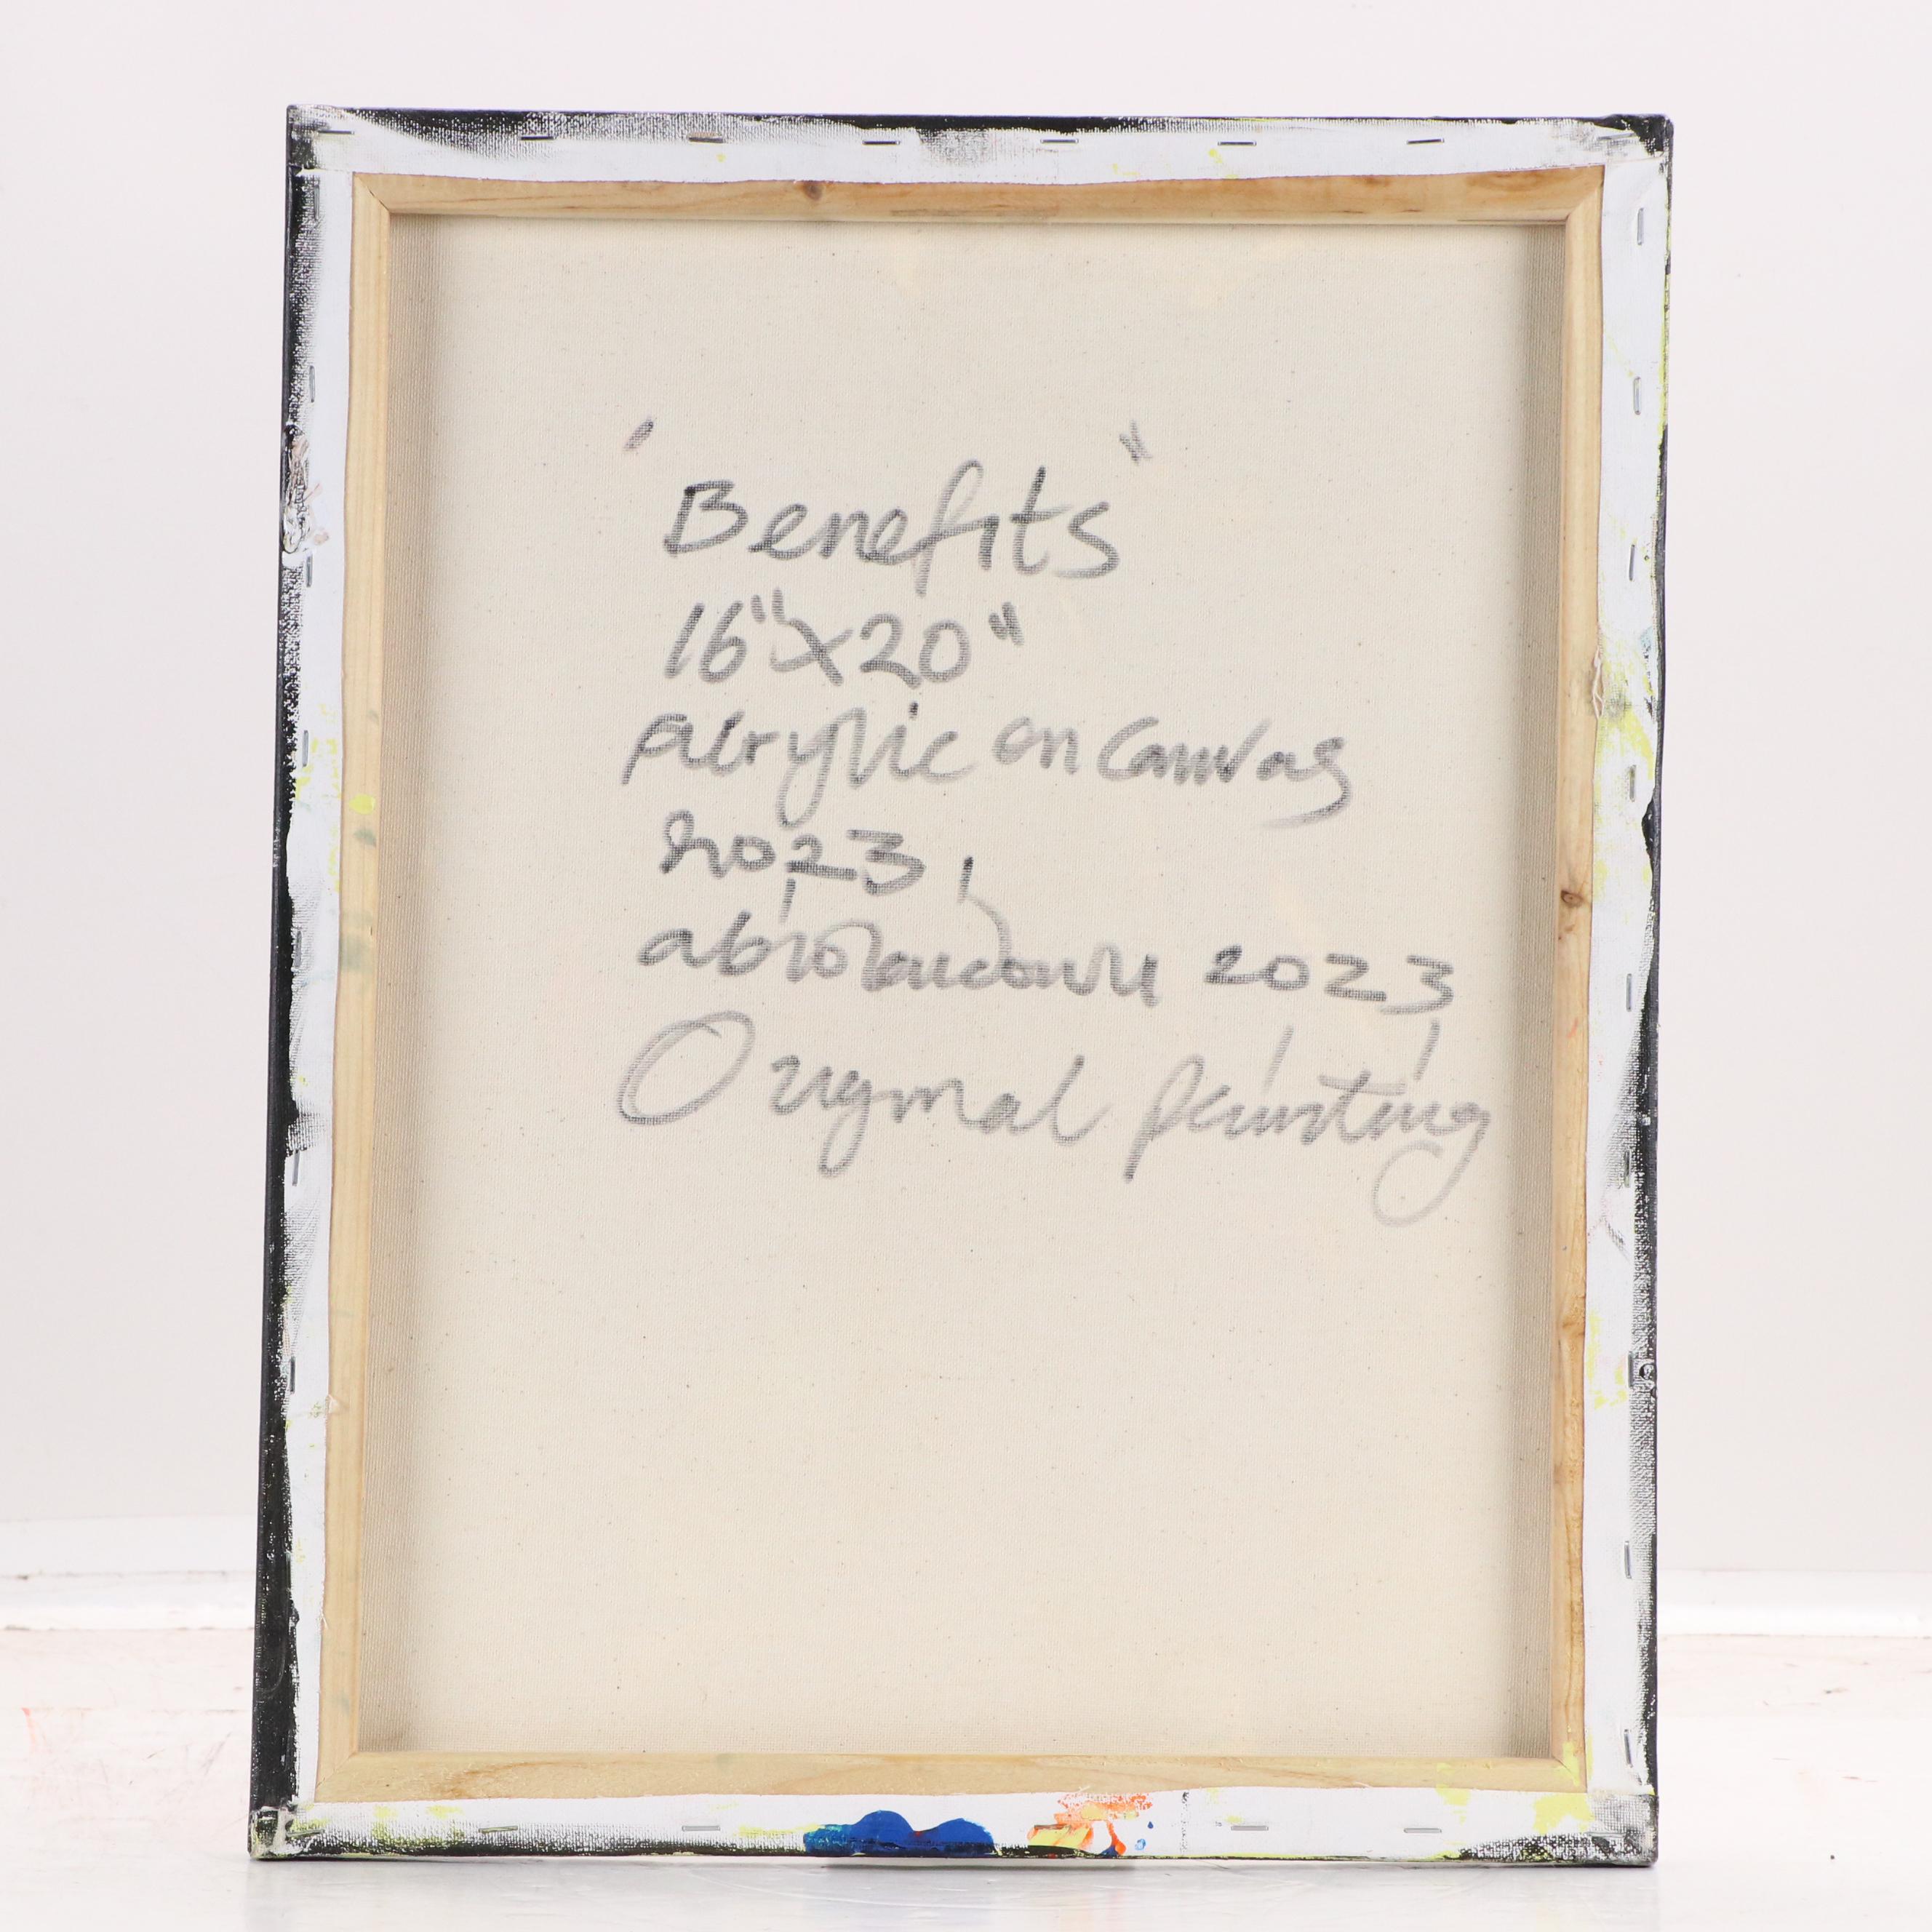 "Benefits"
16"x20"
acrylic on canvas
2023
2023
Original painting